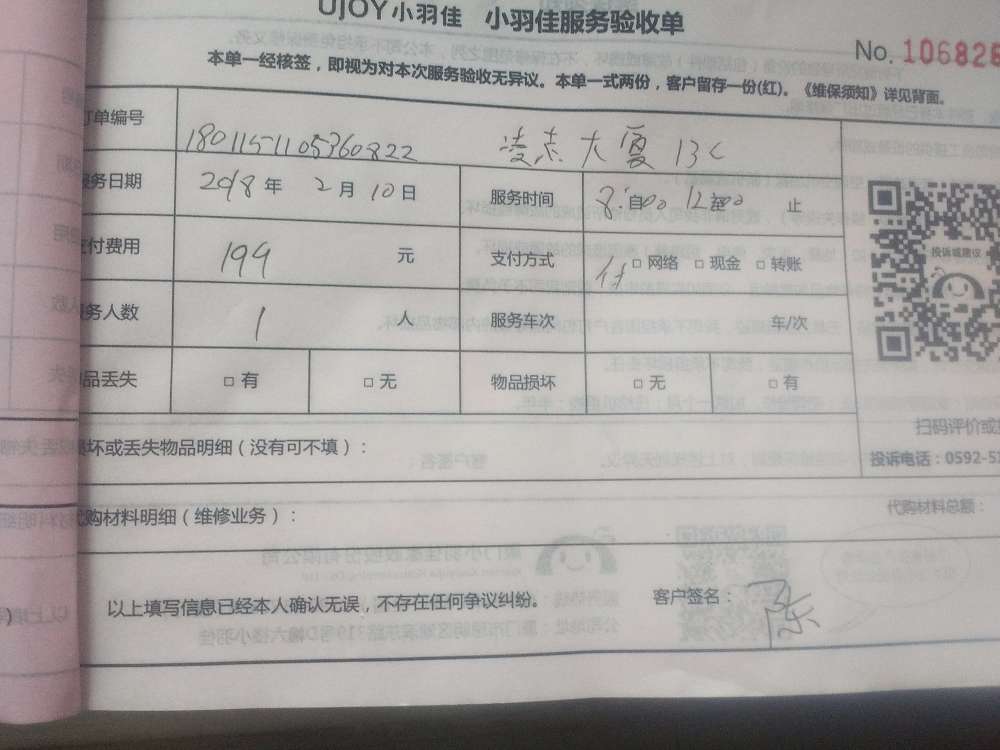 UJOY小羽佳 小羽佳服务验收单
No. 106826
本单一经核签，即视为对本次服务验收无异议。本单一式两份，客户留存一份(红)。《维保须知》详见背面。
订单编号 180115-1105360822 凌志大厦13C
服务日期 2018年 2月10日 服务时间 8:自00 12至00 止
支付费用 199 元 支付方式 付 □网络 □现金 □转账
服务人数 1 人 服务车次 车/次
物品丢失 □有 □无 物品损坏 □无 □有
投诉或建议
扫码评价或
投诉电话：0592-5
损坏或丢失物品明细（没有可不填）：
代购材料明细（维修业务）： 代购材料总额：
以上填写信息已经本人确认无误，不存在任何争议纠纷。 客户签名：